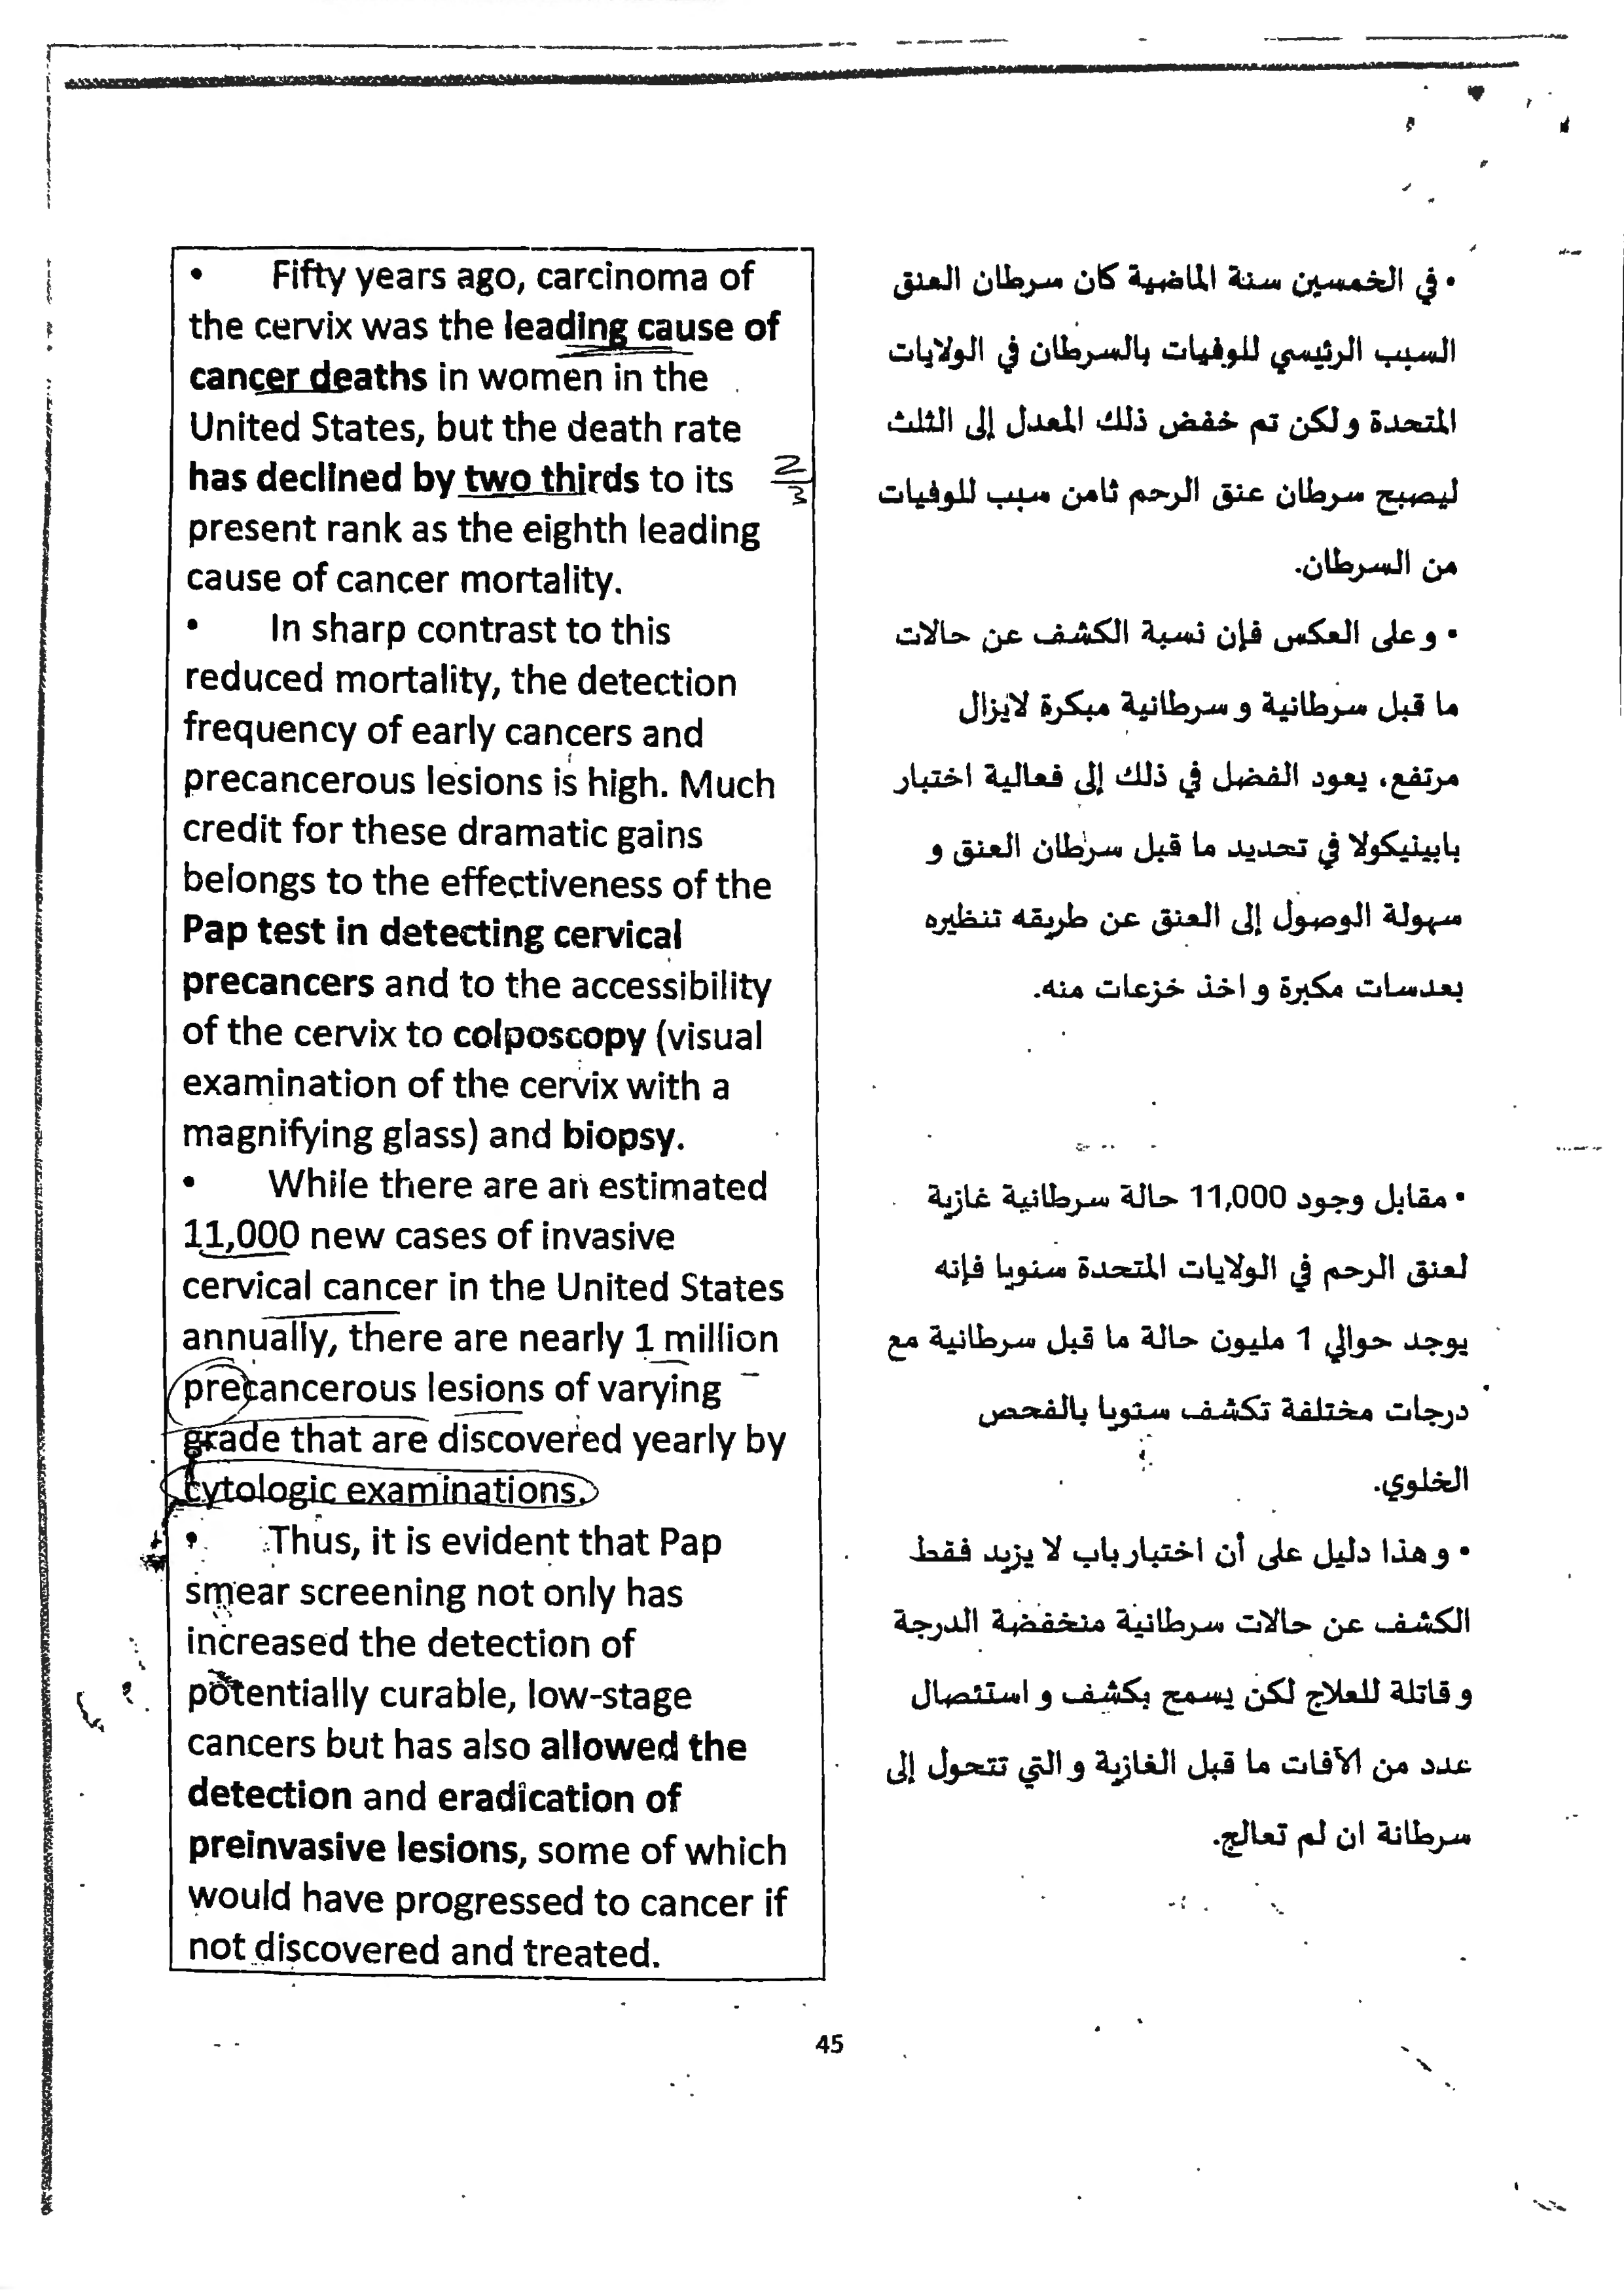 • Fifty years ago, carcinoma of
the cervix was the leading cause of
cancer deaths in women in the
United States, but the death rate
has declined by two thirds to its
2/3
present rank as the eighth leading
cause of cancer mortality.
• In sharp contrast to this
reduced mortality, the detection
frequency of early cancers and
precancerous lesions is high. Much
credit for these dramatic gains
belongs to the effectiveness of the
Pap test in detecting cervical
precancers and to the accessibility
of the cervix to colposcopy (visual
examination of the cervix with a
magnifying glass) and biopsy.
• While there are an estimated
11,000 new cases of invasive
cervical cancer in the United States
annually, there are nearly 1 million
precancerous lesions of varying
grade that are discovered yearly by
cytologic examinations.
• Thus, it is evident that Pap
smear screening not only has
increased the detection of
potentially curable, low-stage
cancers but has also allowed the
detection and eradication of
preinvasive lesions, some of which
would have progressed to cancer if
not discovered and treated.
• في الخمسين سنة الماضية كان سرطان العنق
السبب الرئيسي للوفيات بالسرطان في الولايات
المتحدة و لكن تم خفض ذلك المعدل إلى الثلث
ليصبح سرطان عنق الرحم ثامن سبب للوفيات
من السرطان.
• و على العكس فإن نسبة الكشف عن حالات
ما قبل سرطانية و سرطانية مبكرة لايزال
مرتفع، يعود الفضل في ذلك إلى فعالية اختبار
بابينيكولا في تحديد ما قبل سرطان العنق و
سهولة الوصول إلى العنق عن طريقه تنظيره
بعدسات مكبرة و اخذ خزعات منه.
• مقابل وجود 11,000 حالة سرطانية غازية
لعنق الرحم في الولايات المتحدة سنويا فإنه
يوجد حوالي 1 مليون حالة ما قبل سرطانية مع
درجات مختلفة تكشف سنويا بالفحص
الخلوي.
• و هذا دليل على أن اختبار باب لا يزيد فقط
الكشف عن حالات سرطانية منخفضة الدرجة
و قاتلة للعلاج لكن يسمح بكشف و استئصال
عدد من الآفات ما قبل الغازية و التي تتحول إلى
سرطانة ان لم تعالج.
45